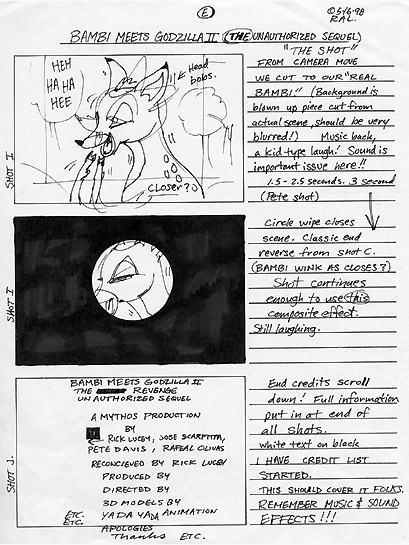 E
©5/6/98
RAL.
BAMBI MEETS GODZILLA II (THE UNAUTHORIZED SEQUEL)
"THE SHOT"
HEH
HA HA
HEE
Head
bobs.
CLOSER?
SHOT I
FROM CAMERA MOVE
WE CUT TO OUR "REAL
BAMBI" (Background is
blown up piece cut from
actual scene, should be very
blurred!) Music back,
a kid type laugh! Sound is
important issue here!!
1.5-2.5 seconds. 3 second
(Pete shot)
SHOT I
Circle wipe closes
scene. Classic end
reverse from shot C.
(BAMBI WINK AS CLOSES?)
Shot continues
enough to use this
composite effect.
Still laughing.
SHOT J.
BAMBI MEETS GODZILLA II
THE REVENGE
UNAUTHORIZED SEQUEL
A MYTHOS PRODUCTION
BY
RICK LUCEY, JOSE SCARPITTA,
PETE DAVIS, RAFEAL OLIVAS
RECONCIEVED BY RICK LUCEY
PRODUCED BY
DIRECTED BY
3D MODELS BY
ETC. YADA YADA ANIMATION
ETC. APOLOGIES
Thanks ETC.
End credits scroll
down! Full information
put in at end of
all shots.
white text on black
I HAVE CREDIT LIST
STARTED.
THIS SHOULD COVER IT FOLKS.
REMEMBER MUSIC & SOUND
EFFECTS!!!